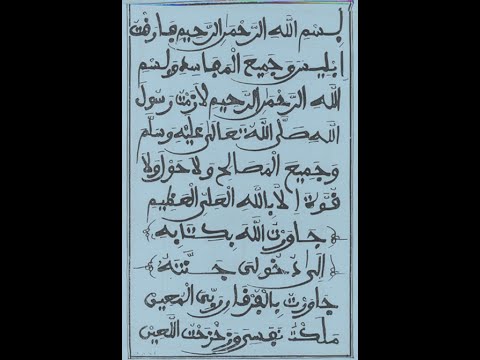 بِسْمِ اللَّهِ الرَّحْمَنِ الرَّحِيمِ فَارَقْتُ
إِبْلِيسَ وَجَمِيعَ الْمَفَاسِدِ وَبِسْمِ
اللَّهِ الرَّحْمَنِ الرَّحِيمِ لَازَمْتُ رَسُولَ
اللَّهِ صَلَّى اللَّهُ تَعَالَى عَلَيْهِ وَسَلَّمَ
وَجَمِيعَ الْمَصَالِحِ وَلَا حَوْلَ وَلَا
قُوَّةَ إِلَّا بِاللَّهِ الْعَلِيِّ الْعَظِيمِ
جَاوَرْتُ اللَّهَ بِكِتَابِهِ
إِلَى دُخُولِي جَنَّتَهُ
جَاوَرْتُ بِالْفُرْقَانِ رَبِّي الْمُعِينْ
مَلَكْتُ نَفْسِي وَزَحْزَحْتُ اللَّعِينْ